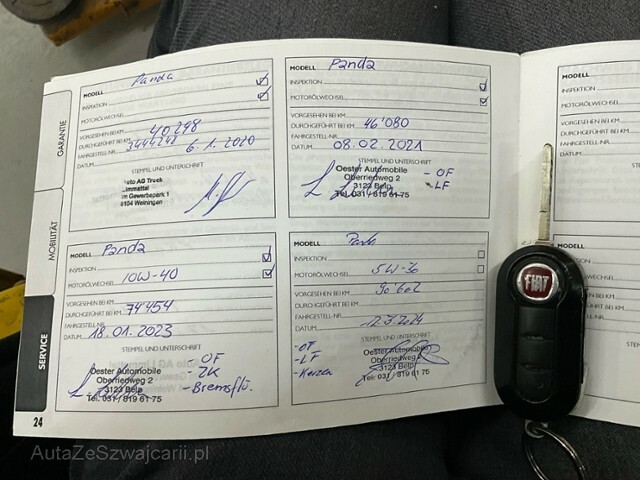 GARANTIE
MOBILITÄT
SERVICE
MODELL Panda
INSPEKTION
MOTORÖLWECHSEL
VORGESEHEN BEI KM
DURCHGEFÜHRT BEI KM 40298
FAHRGESTELL-NR.
DATUM 6.1.2020
STEMPEL UND UNTERSCHRIFT
Auto AG Truck
Limmattal
Im Gewerbepark 1
8104 Weiningen
MODELL Panda
INSPEKTION
MOTORÖLWECHSEL
VORGESEHEN BEI KM
DURCHGEFÜHRT BEI KM 46'080
FAHRGESTELL-NR.
DATUM 08.02.2021
STEMPEL UND UNTERSCHRIFT
Oester Automobile - OF
Oberriedweg 2 - LF
3123 Belp
Tel. 031 / 819 61 75
MODELL Panda
INSPEKTION
MOTORÖLWECHSEL 10W-40
VORGESEHEN BEI KM
DURCHGEFÜHRT BEI KM 74'454
FAHRGESTELL-NR.
DATUM 18.01.2023
STEMPEL UND UNTERSCHRIFT
- OF
Oester Automobile - ZK
Oberriedweg 2 - Bremsflü.
3123 Belp
Tel. 031 / 819 61 75
MODELL Panda
INSPEKTION
MOTORÖLWECHSEL 5W-30
VORGESEHEN BEI KM 90'602
DURCHGEFÜHRT BEI KM
FAHRGESTELL-NR.
DATUM 12.3.2024
STEMPEL UND UNTERSCHRIFT
- LF
- Kerzen
Oester Automobile
Oberriedweg 2
3123 Belp
Tel. 031 / 819 61 75
24
MODELL
INSPEKTION
MOTORÖLWECHSEL
VORGESEHEN BEI KM
DATUM
MODELL
INSPEKTION
FIAT
AutaZeSzwajcarii.pl